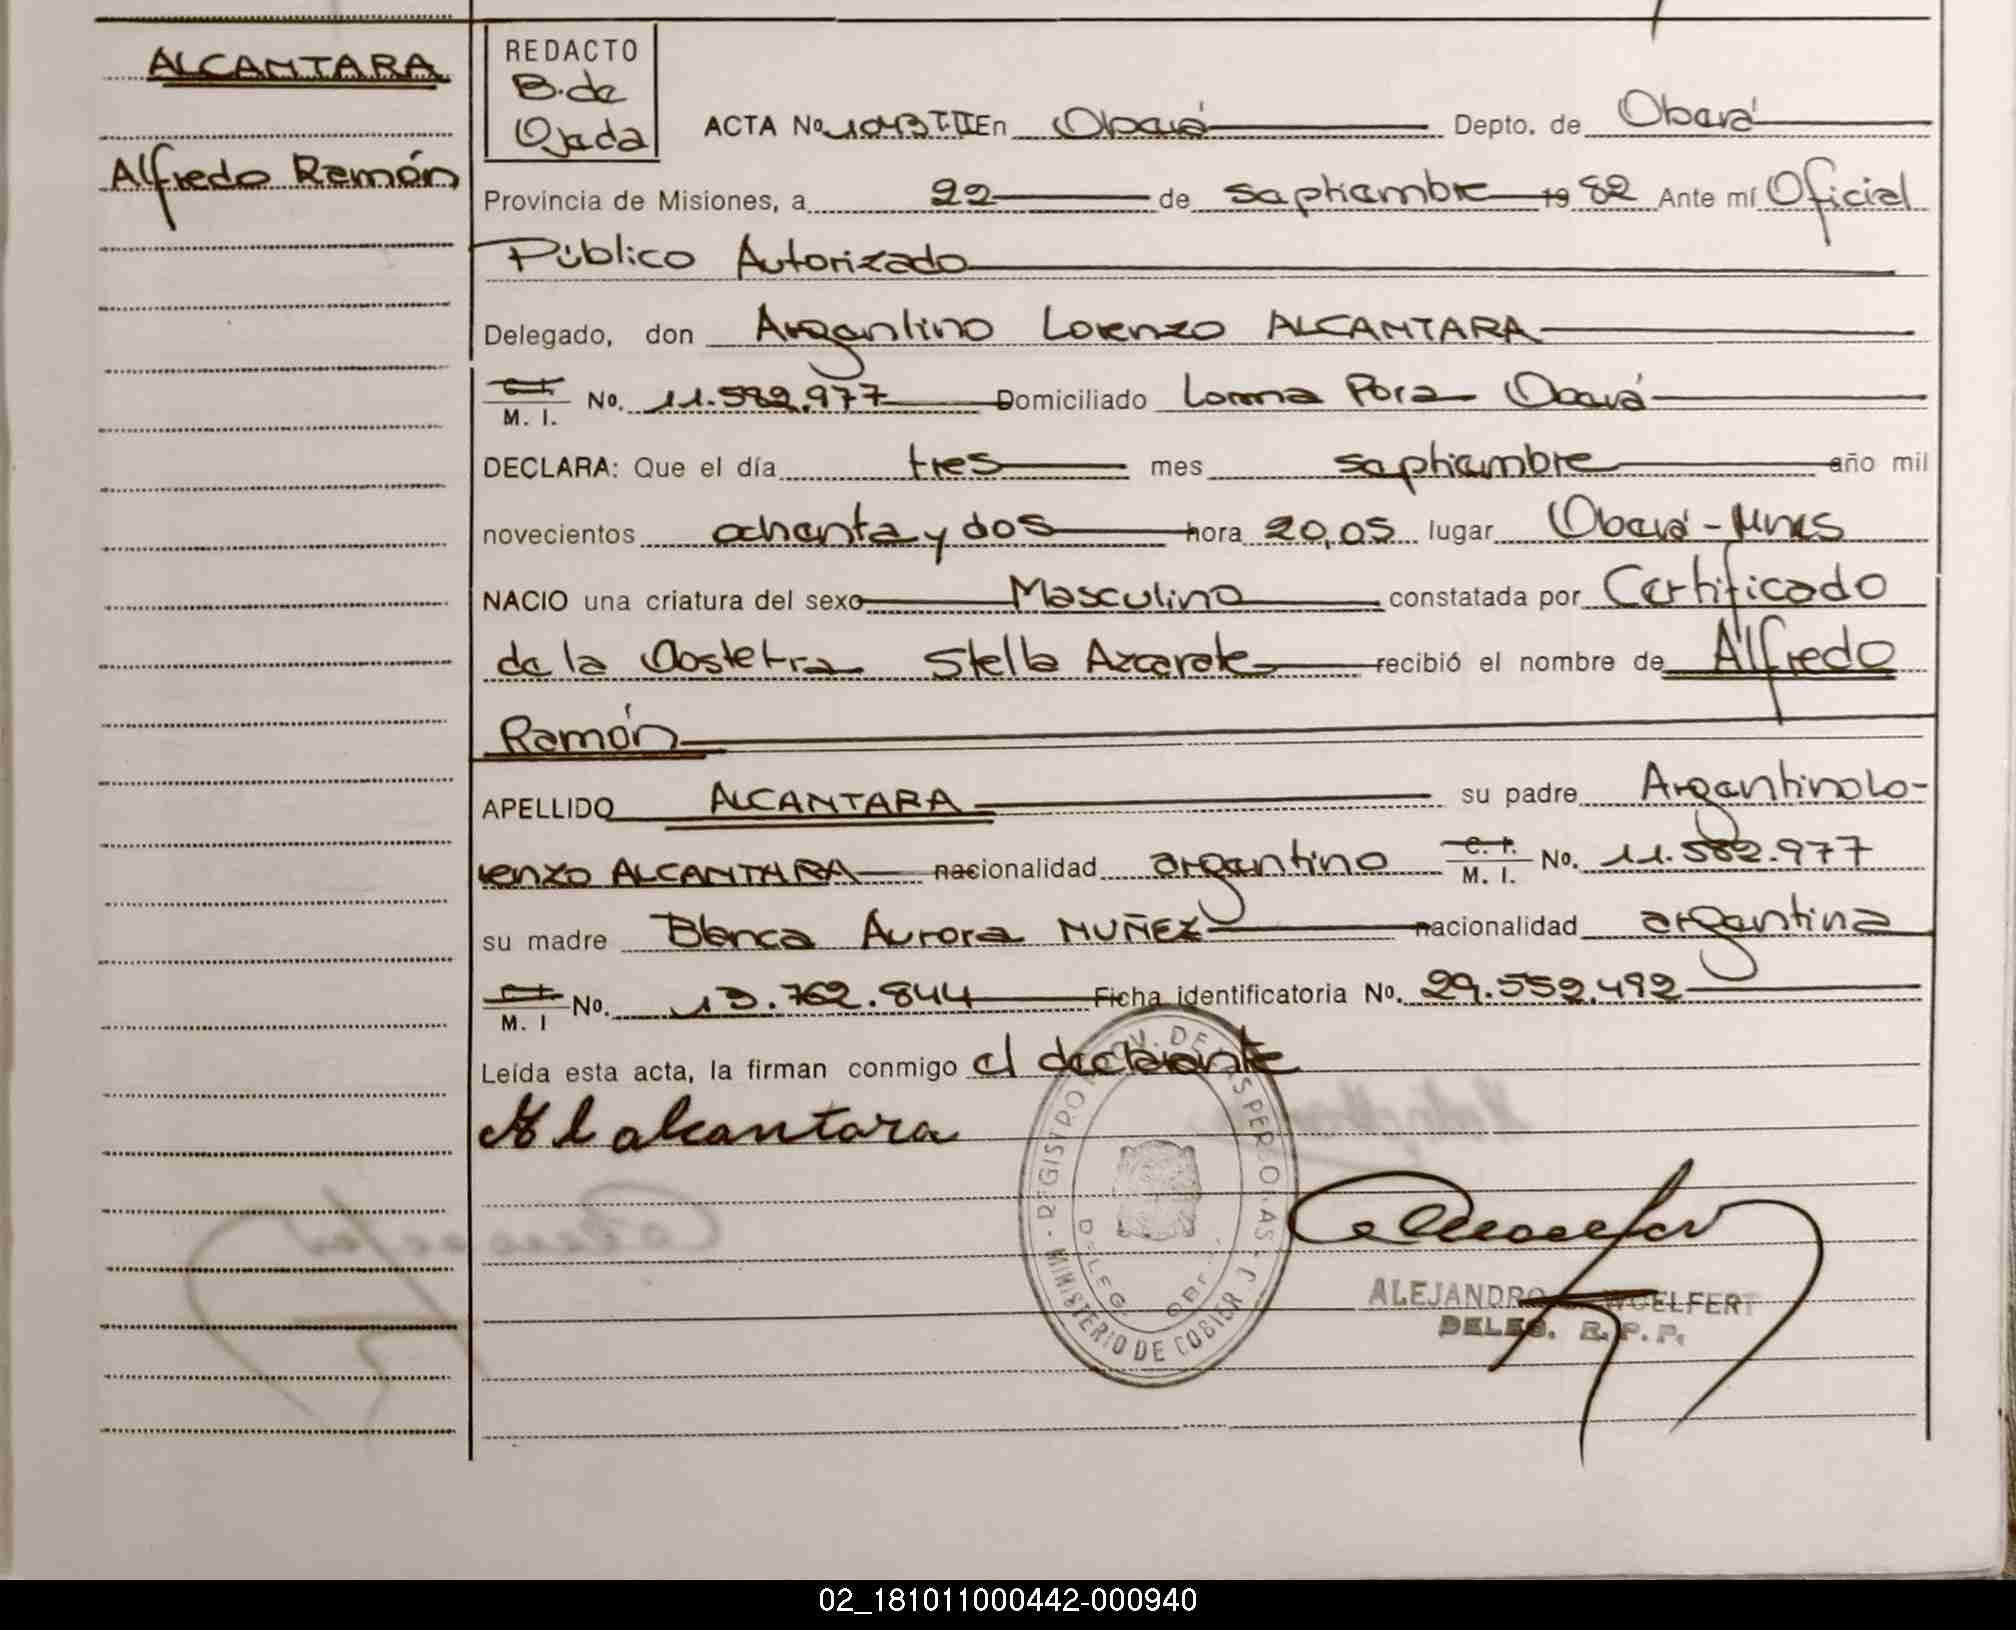 ALCANTARA
Alfredo Ramón
REDACTO
B. de
Ojeda
ACTA No 1043 T.III En Oberá Depto. de Oberá
Provincia de Misiones, a 22 de septiembre 1982 Ante mí Oficial
Público Autorizado
Delegado, don Argentino Lorenzo ALCANTARA
C.I. M. I. No. 11.582.977 Domiciliado Loma Pora Oberá
DECLARA: Que el día tres mes septiembre año mil
novecientos ochenta y dos hora 20,05 lugar Oberá - Mnes
NACIO una criatura del sexo Masculino constatada por Certificado
de la Obstetra Stella Azcarate recibió el nombre de Alfredo
Ramón
APELLIDO ALCANTARA su padre Argentino Lo-
renzo ALCANTARA nacionalidad argentino C. I. M. I. No. 11.582.977
su madre Blanca Aurora MUÑEZ nacionalidad argentina
C.I. M. I No. 13.762.844 Ficha identificatoria No. 29.552.492
Leída esta acta, la firman conmigo el declarante
A L alcantara
REGISTRO PROV. DE LAS PERSONAS
MINISTERIO DE GOBIER
DELEG. OBE
ALEJANDRO WOELFERT
DELEG. R. P. P.
02_181011000442-000940